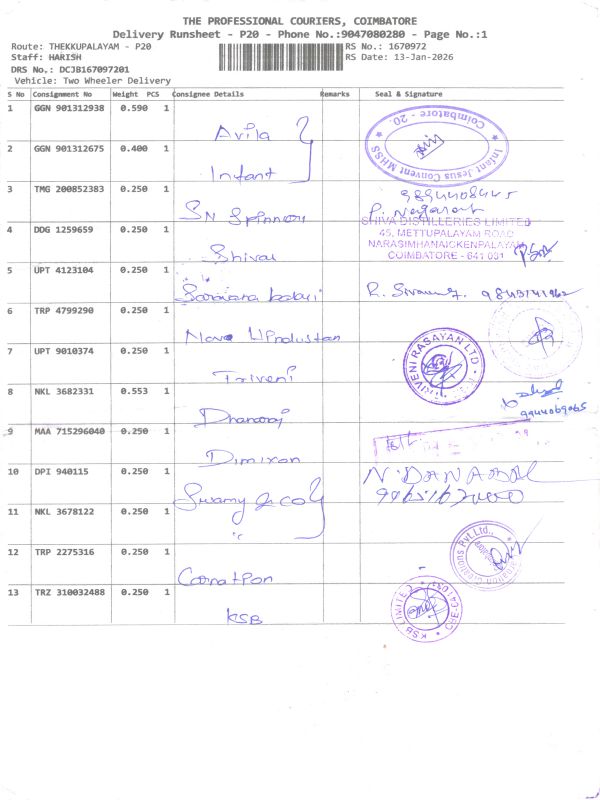 THE PROFESSIONAL COURIERS, COIMBATORE
Delivery Runsheet - P20 - Phone No.:9047080280 - Page No.:1
Route: THEKKUPALAYAM - P20 RS No.: 1670972
Staff: HARISH RS Date: 13-Jan-2026
DRS No.: DCJB167097201
Vehicle: Two Wheeler Delivery
S No Consignment No Weight PCS Consignee Details Remarks Seal & Signature
1 GGN 901312938 0.590 1 Avila
Infant Jesus Convent MHSS
Coimbatore - 20.
2 GGN 901312675 0.400 1 Infant
3 TMG 200852383 0.250 1 SN Spinners
4 DDG 1259659 0.250 1 Shiva
SHIVA DISTILLERIES LIMITED
45, METTUPALAYAM ROAD
NARASIMHANAICKENPALAYAM
COIMBATORE - 641 031
5 UPT 4123104 0.250 1
6 TRP 4799290 0.250 1
7 UPT 9010374 0.250 1 Triveni
TRIVENI RASAYAN LTD
8 NKL 3682331 0.553 1 Dhanaraj
9944069065
9 MAA 715296040 0.250 1 Dimixon
10 DPI 940115 0.250 1 Swamy & Co
11 NKL 3678122 0.250 1 "
12 TRP 2275316 0.250 1
13 TRZ 310032488 0.250 1 KSB